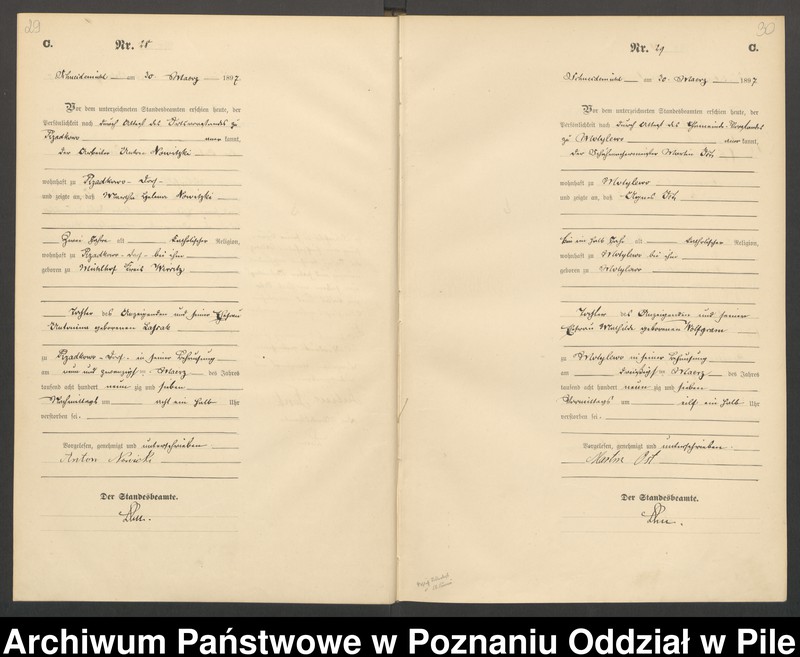 29
C.
Nr. 28
Schneidemühl am 30. Maerz 1897.
Vor dem unterzeichneten Standesbeamten erschien heute, der
Persönlichkeit nach durch Attest des Ortsvorstandes zu
Rzadkowo kannt,
der Arbeiter Anton Nowitzki
wohnhaft zu Rzadkowo-Dorf-
und zeigte an, daß Martha Helena Nowitzki
Zwei Jahre alt Katholischer Religion,
wohnhaft zu Rzadkowo-Dorf- bei ihm
geboren zu Kreis Wirsitz
Tochter des Anzeigenden und seiner Ehefrau
Antonina geborenen
zu Rzadkowo-Dorf- in seiner Behausung
am neun und zwanzigsten Maerz des Jahres
tausend acht hundert neunzig und sieben
Nachmittags um acht ein halb Uhr
verstorben sei.
Vorgelesen, genehmigt und unterschrieben
Anton Nowicki
Der Standesbeamte.
30
Nr. 29
C.
Schneidemühl am 30. Maerz 1897.
Vor dem unterzeichneten Standesbeamten erschien heute, der
Persönlichkeit nach durch Attest des Gemeinde-Vorstandes
zu Motylewo kannt,
der Schuhmachermeister Martin Ost,
wohnhaft zu Motylewo
und zeigte an, daß Agnes Ost,
ein halb Jahr alt Katholischer Religion,
wohnhaft zu Motylewo bei ihm
geboren zu Motylewo
Tochter des Anzeigenden und seiner
Ehefrau Mathilde geborenen Wolfgram
zu Motylewo in seiner Behausung
am dreißigsten Maerz des Jahres
tausend acht hundert neunzig und sieben
Vormittags um ein halb Uhr
verstorben sei.
Vorgelesen, genehmigt und unterschrieben.
Martin Ost
Der Standesbeamte.
Archiwum Państwowe w Poznaniu Oddział w Pile